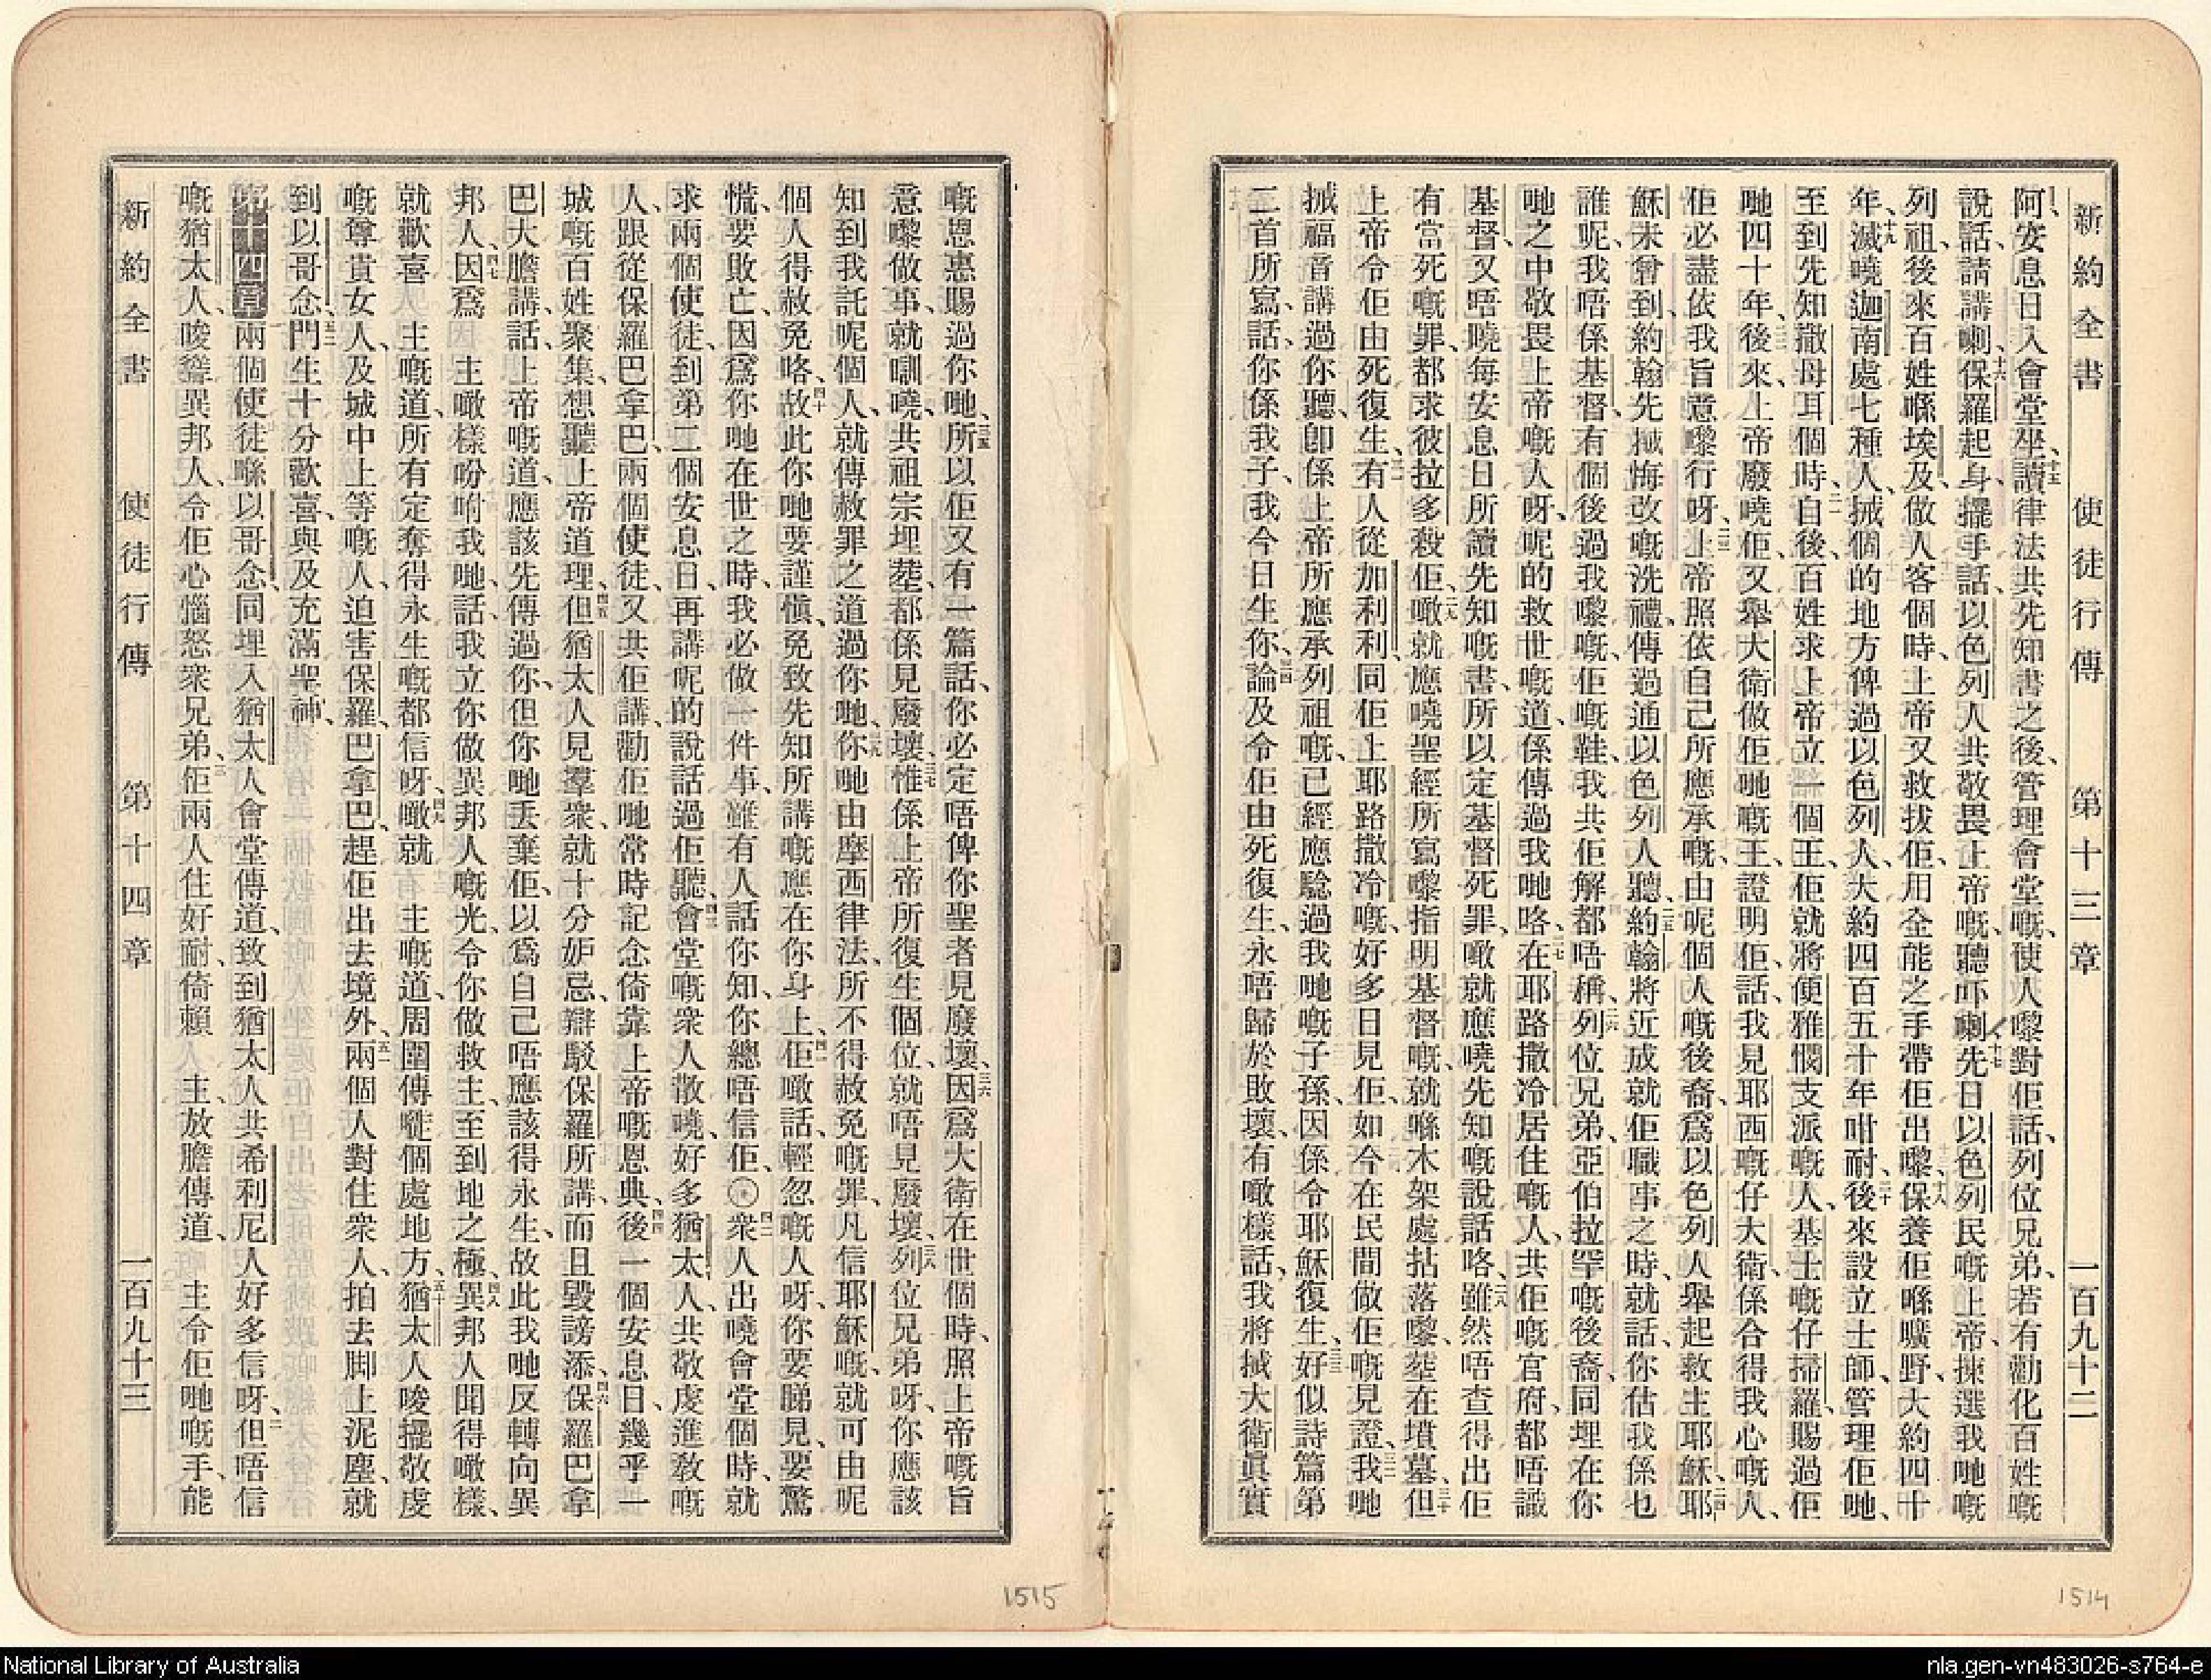 新約全書 使徒行傳 第十三章 一百九十二
阿、安息日入會堂坐、十五讀律法共先知書之後、管理會堂嘅、使人嚟對佢話、列位兄弟、若有勸化百姓嘅
說話、請講喇、十六保羅起身、擺手話、以色列人共敬畏上帝嘅、聽吓喇、十七先日以色列民嘅上帝、揀選我哋嘅
列祖、後來百姓喺埃及做人客個時、上帝又救拔佢、用全能之手帶佢出嚟、十八保養佢喺曠野、大約四十
年、十九滅嘵迦南處七種人、搣個的地方俾過以色列人、大約四百五十年咁耐、二十後來設立士師、管理佢哋、
至到先知撒母耳個時、二一自後百姓求上帝立一個王、佢就將便雅憫支派嘅人、基士嘅仔掃羅賜過佢
哋四十年、二二後來上帝廢嘵佢、又舉大衛做佢哋嘅王、證明佢、話、我見耶西嘅仔大衛、係合得我心嘅人、
佢必盡依我旨意嚟行呀、二三上帝照依自己所應承嘅、由呢個人嘅後裔、爲以色列人舉起救主耶穌、二四耶
穌未曾到、約翰先搣悔改嘅洗禮、傳過通以色列人聽、二五約翰將近成就佢職事之時、就話、你估我係乜
誰呢、我唔係基督、有個後過我嚟嘅、佢嘅鞋、我共佢解都唔稱、二六列位兄弟、亞伯拉罕嘅後裔、同埋在你
哋之中敬畏上帝嘅人呀、呢的救世嘅道、係傳過我哋咯、二七在耶路撒冷居住嘅人、共佢嘅官府、都唔識
基督、又唔嘵每安息日所讀先知嘅書、所以定基督死罪、噉就應嘵先知嘅說話咯、二八雖然唔查得出佢
有當死嘅罪、都求彼拉多殺佢、二九噉就應嘵聖經所寫嚟指明基督嘅、就喺木架處拈落嚟、塟在墳墓、三十但
上帝令佢由死復生、三一有人從加利利、同佢上耶路撒冷嘅、好多日見佢、如今在民間做佢嘅見證、三二我哋
搣福音講過你聽、卽係上帝所應承列祖嘅、已經應騐過我哋嘅子孫、因係令耶穌復生、三三好似詩篇第
二首所寫、話、你係我子、我今日生你、三四論及令佢由死復生、永唔歸於敗壞、有噉樣話、我將搣大衛眞實
嘅恩惠賜過你哋、三五所以佢又有一篇話、你必定唔俾你聖者見廢壞、三六因爲大衛在世個時、照上帝嘅旨
意嚟做事、就瞓嘵、共祖宗埋塟、都係見廢壞、三七惟係上帝所復生個位、就唔見廢壞、三八列位兄弟呀、你應該
知到我託呢個人、就傳赦罪之道過你哋、三九你哋由摩西律法、所不得赦免嘅罪、凡信耶穌嘅、就可由呢
個人得赦免咯、四十故此你哋要謹愼、免致先知所講嘅應在你身上、四一佢噉話、輕忽嘅人呀、你要睇見、要驚
慌、要敗亡、因爲你哋在世之時、我必做一件事、雖有人話你知、你總唔信佢、四二衆人出嘵會堂個時、就
求兩個使徒、到第二個安息日、再講呢的說話過佢聽、四三會堂嘅衆人散嘵、好多猶太人、共敬虔進敎嘅
人、跟從保羅巴拿巴、兩個使徒、又共佢講、勸佢哋常時記念倚靠上帝嘅恩典、四四後一個安息日、幾乎一
城嘅百姓聚集、想聽上帝道理、四五但猶太人見羣衆、就十分妒忌、辯駁保羅所講、而且毀謗添、四六保羅巴拿
巴大膽講話、上帝嘅道、應該先傳過你、但你哋丟棄佢、以爲自己唔應該得永生、故此我哋反轉向異
邦人、四七因爲 主噉樣吩咐我哋話、我立你做異邦人嘅光、令你做救主、至到地之極、四八異邦人聞得噉樣、
就歡喜 主嘅道、所有定奪得永生嘅都信呀、四九噉就 主嘅道、周圍傳嘥個處地方、五十猶太人唆擺敬虔
嘅尊貴女人、及城中上等嘅人、迫害保羅、巴拿巴、趕佢出去境外、五一兩個人對住衆人、拍去脚上泥塵、就
到以哥念、五二門生十分歡喜、與及充滿聖神、
第十四章 兩個使徒喺以哥念、同埋入猶太人會堂傳道、致到猶太人共希利尼人好多信呀、二但唔信
嘅猶太人、唆聳異邦人、令佢心惱怒衆兄弟、三佢兩人住好耐、倚賴 主放膽傳道、 主令佢哋嘅手、能
新約全書 使徒行傳 第十四章 一百九十三
1515
1514
National Library of Australia
nla.gen-vn483026-s764-e